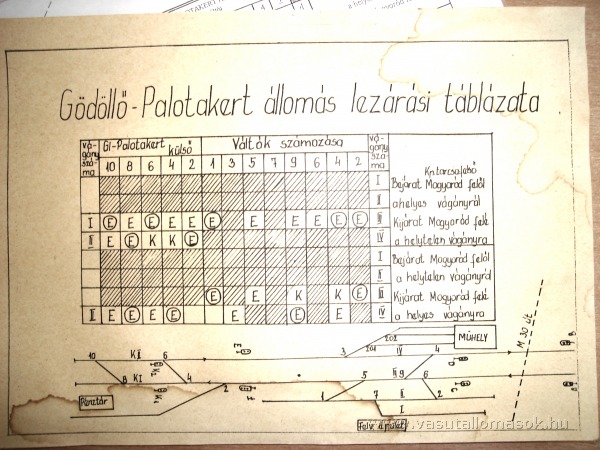 Gödöllő-Palotakert állomás lezárási táblázata
vágány száma Gl-Palotakert külső Váltók számozása vágány száma
10 8 6 4 2 1 3 5 7 9 6 4 2
I Bejárat Magyaród felől
II a helyes vágányról
I E E E E E E E E E E E E III Kijárat Magyaród felé
II E E K K E IV a helytelen vágányra
I Bejárat Magyaród felől
II a helytelen vágányról
E E K K E III Kijárat Magyaród felé
II E E E E E E E IV a helyes vágányra
MŰHELY
201 202
10 K II 6 E 3 IV 4 D B
K2
8 K I 4 2 F 5 III 9 6 C A
K1
Pénztár 1 7 II 2
I
Felv. épület
M 30 út
www.vasutallomasok.hu